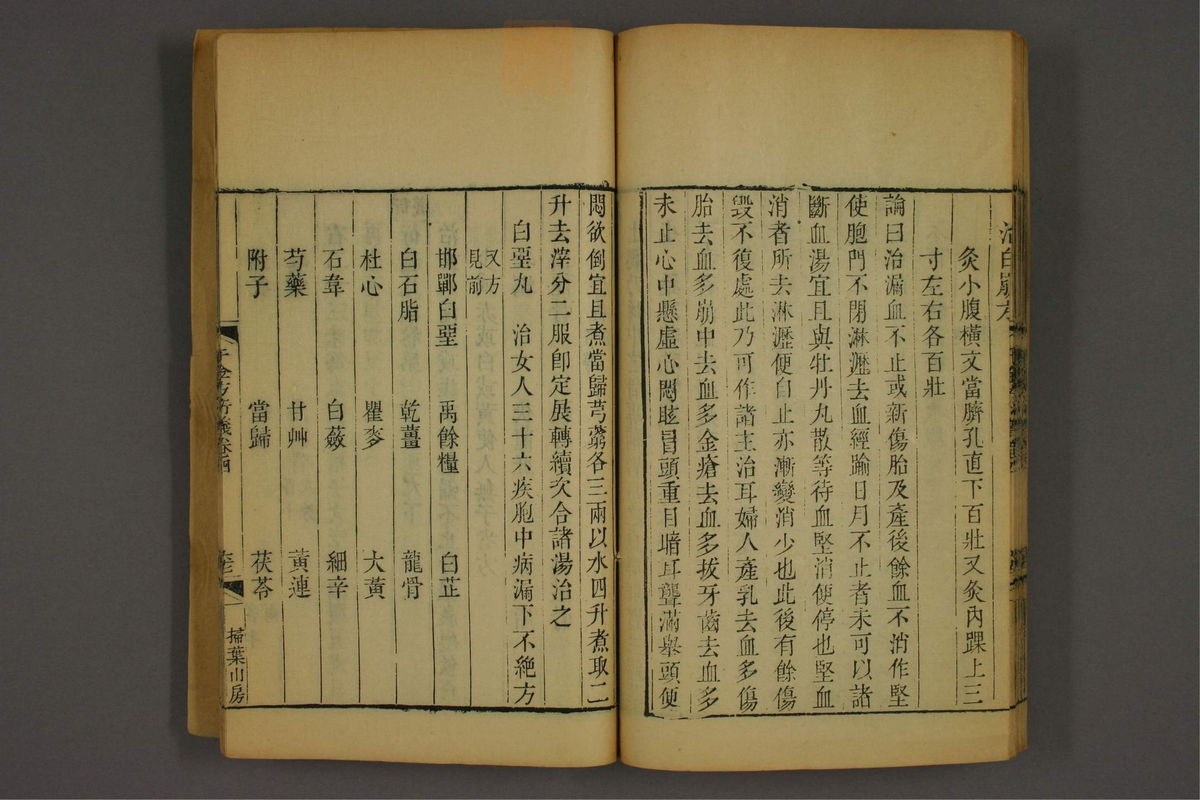 治白崩方
灸小腹橫文當臍孔直下百壯又灸內踝上三
寸左右各百壯
論曰治漏血不止或新傷胎及產後餘血不消作堅
使胞門不閉淋瀝去血經踰日月不止者未可以諸
斷血湯宜且與牡丹丸散等待血堅消便停也堅血
消者所去淋瀝便自止亦漸變消少也此後有餘傷
毀不復處此乃可作諸主治耳婦人產乳去血多傷
胎去血多崩中去血多金瘡去血多拔牙齒去血多
未止心中懸虛心悶眩冒頭重目暗耳聾滿舉頭便
悶欲倒宜且煮當歸芎藭各三兩以水四升煮取二
升去滓分二服即定展轉續次合諸湯治之
白堊丸 治女人三十六疾胞中病漏下不絕方
又方
見前
邯鄲白堊 禹餘糧 白芷
白石脂 乾薑 龍骨
杜心 瞿麥 大黃
石韋 白蘞 細辛
芍藥 甘艸 黃連
附子 當歸 茯苓
千金方衍義卷四
掃葉山房